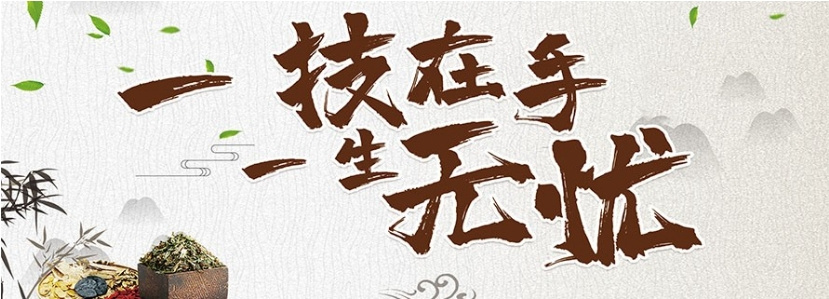 一技在手
一生无忧